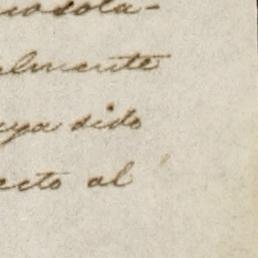 almente
aya sido
ecto al